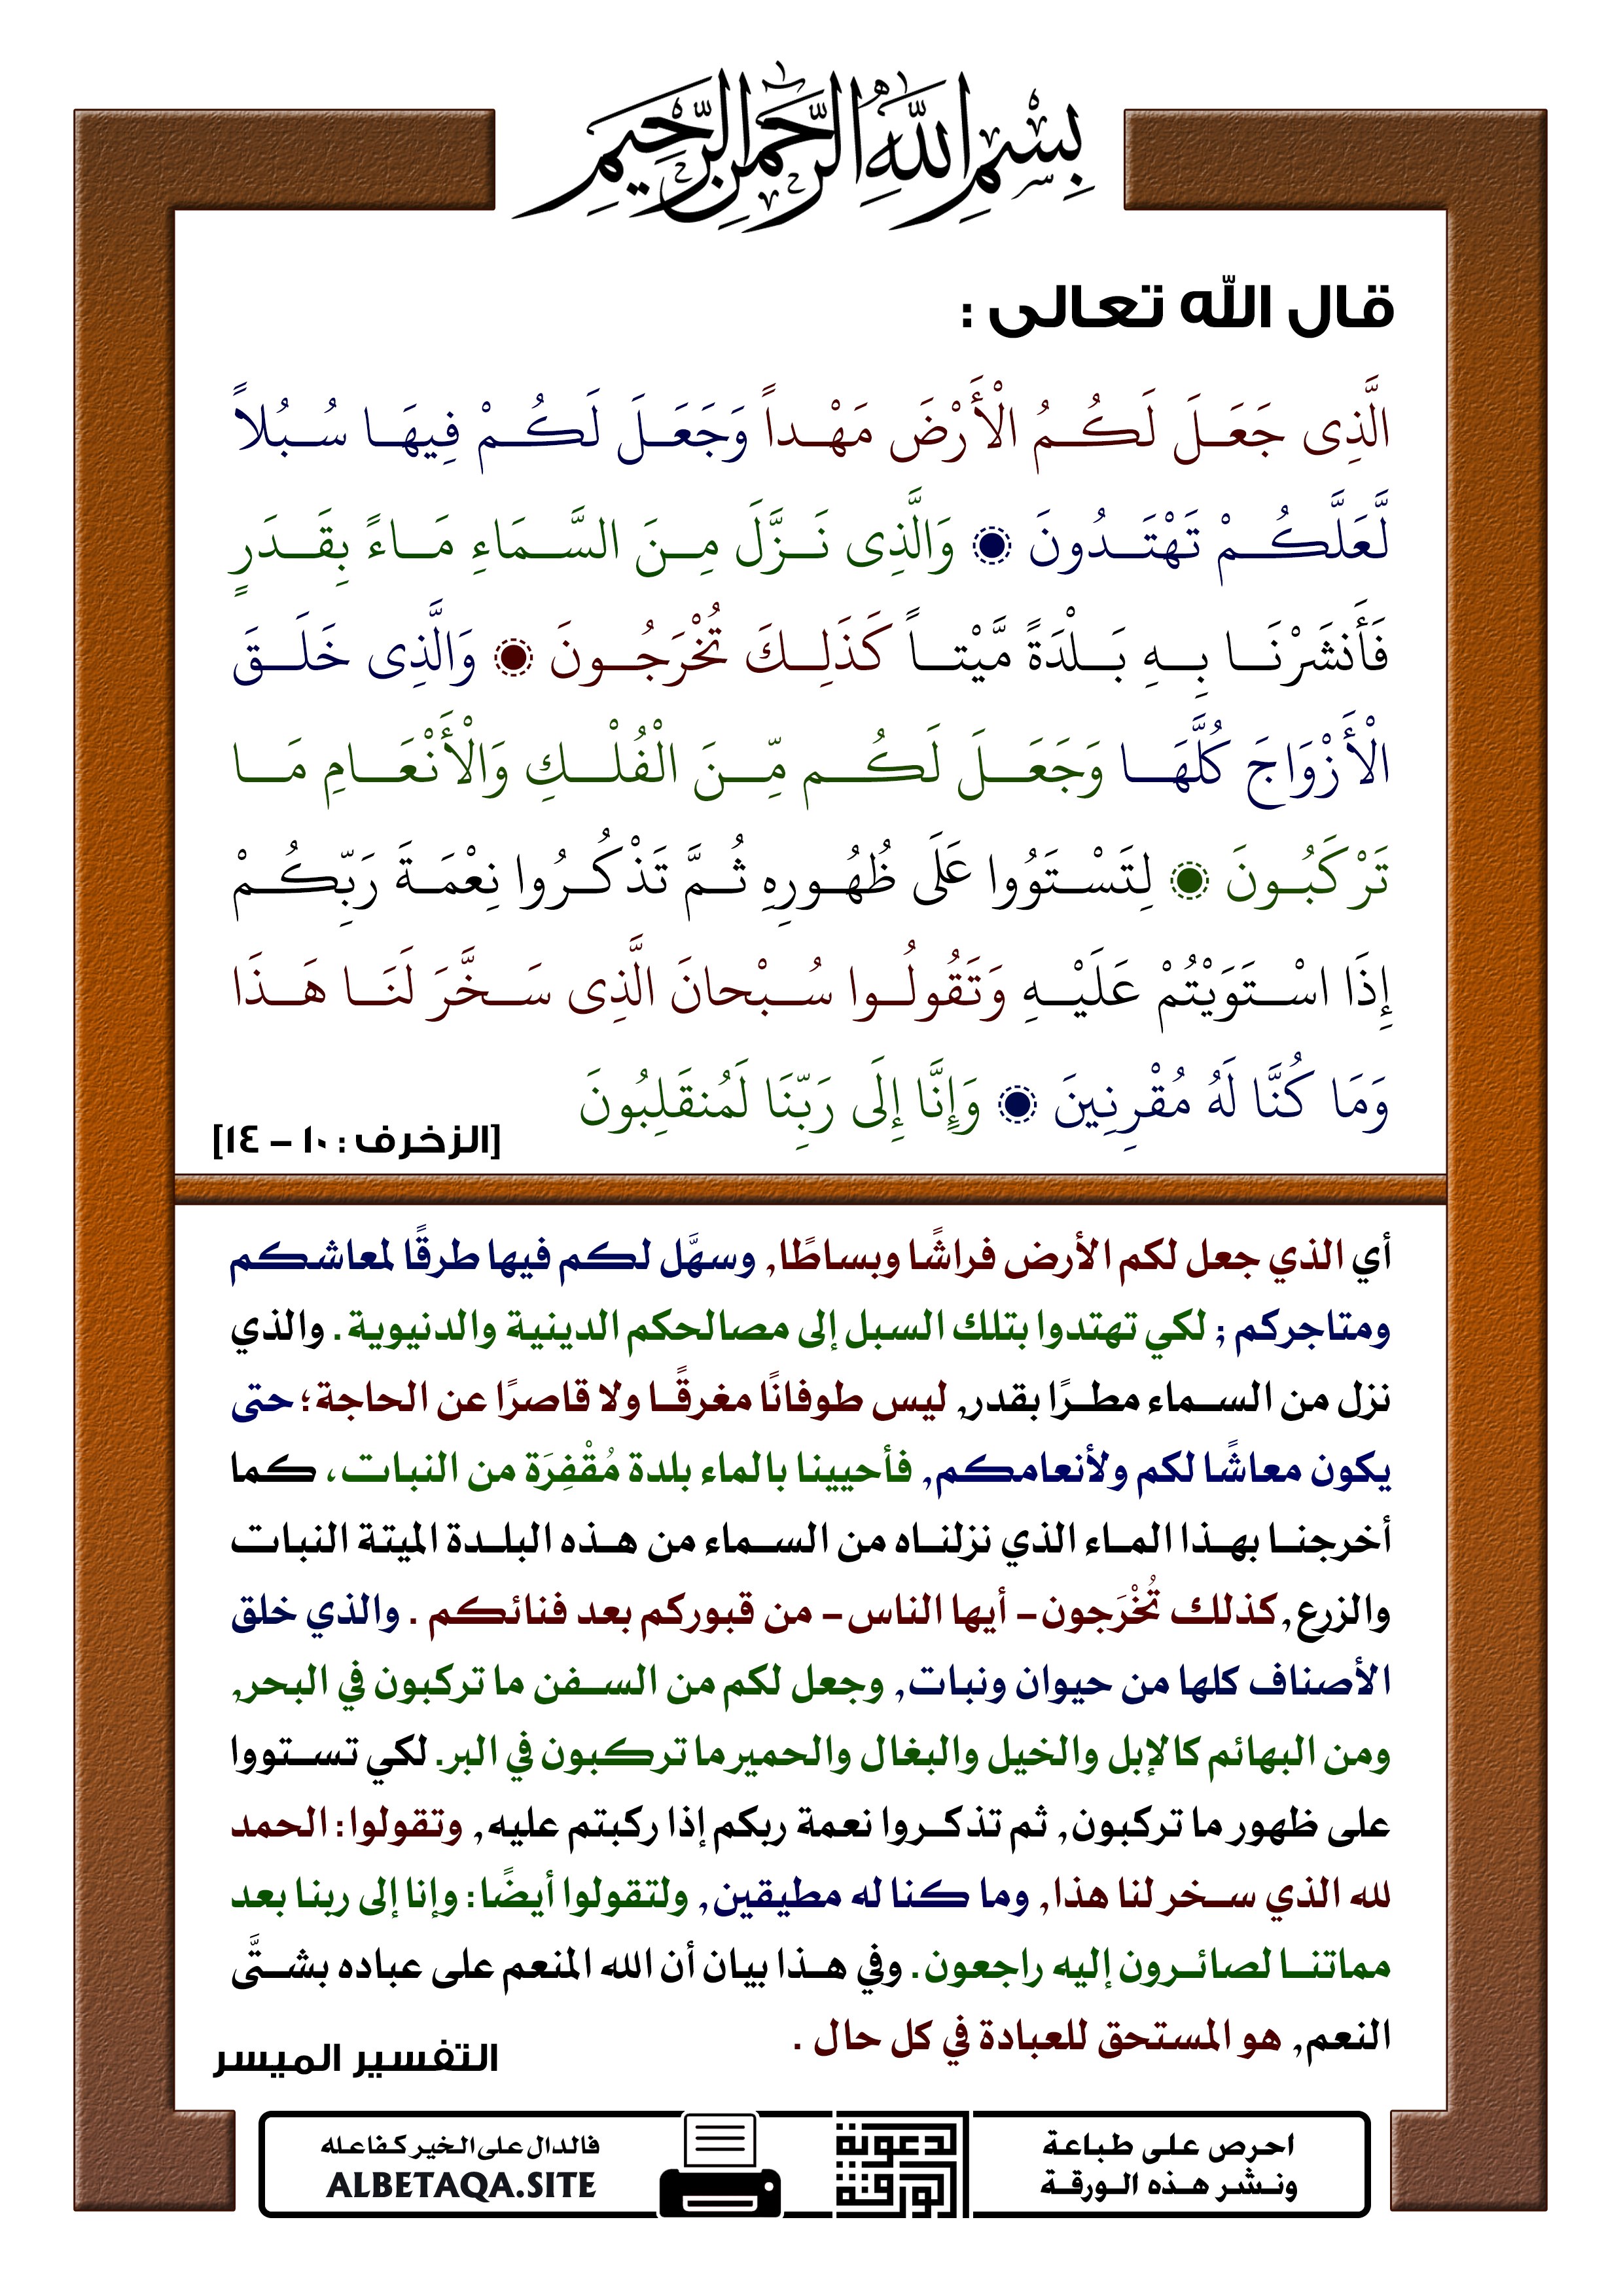 بِسْمِ اللَّهِ الرَّحْمَٰنِ الرَّحِيمِ
قال الله تعالى :
الَّذِى جَعَلَ لَكُمُ الْأَرْضَ مَهْداً وَجَعَلَ لَكُمْ فِيهَا سُبُلاً
لَّعَلَّكُمْ تَهْتَدُونَ ۝ وَالَّذِى نَزَّلَ مِنَ السَّمَاءِ مَاءً بِقَدَرٍ
فَأَنشَرْنَا بِهِ بَلْدَةً مَّيْتاً كَذَلِكَ تُخْرَجُونَ ۝ وَالَّذِى خَلَقَ
الْأَزْوَاجَ كُلَّهَا وَجَعَلَ لَكُم مِّنَ الْفُلْكِ وَالْأَنْعَامِ مَا
تَرْكَبُونَ ۝ لِتَسْتَوُوا عَلَى ظُهُورِهِ ثُمَّ تَذْكُرُوا نِعْمَةَ رَبِّكُمْ
إِذَا اسْتَوَيْتُمْ عَلَيْهِ وَتَقُولُوا سُبْحانَ الَّذِى سَخَّرَ لَنَا هَذَا
وَمَا كُنَّا لَهُ مُقْرِنِينَ ۝ وَإِنَّا إِلَى رَبِّنَا لَمُنقَلِبُونَ
[الزخرف : ١٠ – ١٤]
أي الذي جعل لكم الأرض فراشًا وبساطًا, وسهَّل لكم فيها طرقًا لمعاشكم
ومتاجركم ; لكي تهتدوا بتلك السبل إلى مصالحكم الدينية والدنيوية . والذي
نزل من السماء مطرًا بقدر, ليس طوفانًا مغرقًا ولا قاصرًا عن الحاجة؛ حتى
يكون معاشًا لكم ولأنعامكم, فأحيينا بالماء بلدة مُقْفِرَة من النبات، كما
أخرجنا بهذا الماء الذي نزلناه من السماء من هذه البلدة الميتة النبات
والزرع, كذلك تُخْرَجون – أيها الناس – من قبوركم بعد فنائكم . والذي خلق
الأصناف كلها من حيوان ونبات, وجعل لكم من السفن ما تركبون في البحر,
ومن البهائم كالإبل والخيل والبغال والحمير ما تركبون في البر. لكي تستووا
على ظهور ما تركبون, ثم تذكروا نعمة ربكم إذا ركبتم عليه, وتقولوا: الحمد
لله الذي سخر لنا هذا, وما كنا له مطيقين, ولتقولوا أيضًا: وإنا إلى ربنا بعد
مماتنا لصائرون إليه راجعون. وفي هذا بيان أن الله المنعم على عباده بشتَّى
النعم, هو المستحق للعبادة في كل حال .
التفسير الميسر
احرص على طباعة
ونشر هذه الورقة
الورقة
الدعوية
فالدال على الخير كفاعله
ALBETAQA.SITE